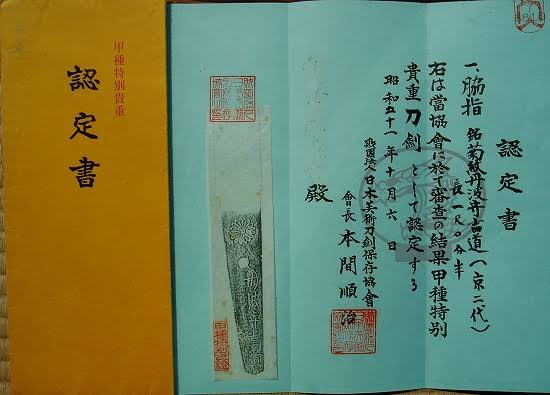 甲種特別貴重
認定書
認定書
一、脇指 銘 菊紋丹波守吉道(京二代)
長一尺
分半
右は當協會に於て審査の結果甲種特別
貴重刀劍として認定する
昭和五十一年十月六日
財團法人日本美術刀劍保存協會
會長 本間順治
殿